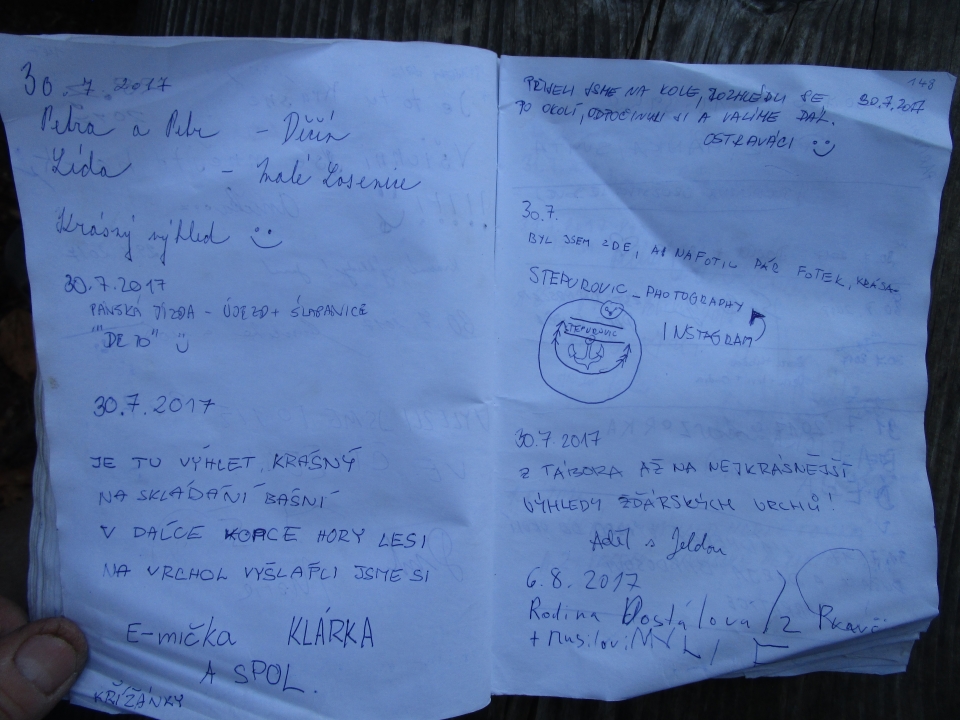 30. 7. 2017
Petra a Petr - Děčín
Lída - Malé Losenice
Krásný výhled
30.7.2017
PÁNSKÁ JÍZDA - ÚJEZD + ŠLAPANICE
"DE 70"
30.7.2017
JE TU VÝHLET KRÁSNÝ
NA SKLÁDÁNÍ BÁSNÍ
V DALCE KOPCE HORY LESI
NA VRCHOL VYŠLAPLI JSME SI
E-mička KLÁRKA
A SPOL.
KŘIŽÁNKY
148
PŘIJELI JSME NA KOLE, ROZHLÉDLI SE, 30.7.2017
PO OKOLÍ, ODPOČINULI SI A VALÍME DÁL.
OSTRAVÁCI
30.7.
BYL JSEM ZDE, AŤ NAFOTIL PÁR FOTEK, KRÁSA
STEPUROVIC_PHOTOGRAPHY
INSTAGRAM
STEPUROVIC
30.7.2017
Z TÁBORA AŽ NA NEJKRÁSNĚJŠÍ
VÝHLEDY ŽĎÁRSKÝCH VRCHŮ!
6.8.2017
Rodina Dostálova z
+ Musilovi